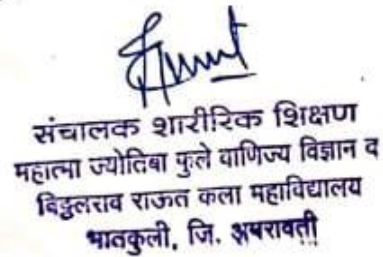 संचालक शारीरिक शिक्षण
महात्मा ज्योतिबा फुले वाणिज्य विज्ञान व
विठ्ठलराव राऊत कला महाविद्यालय
भातकुली, जि. अमरावती